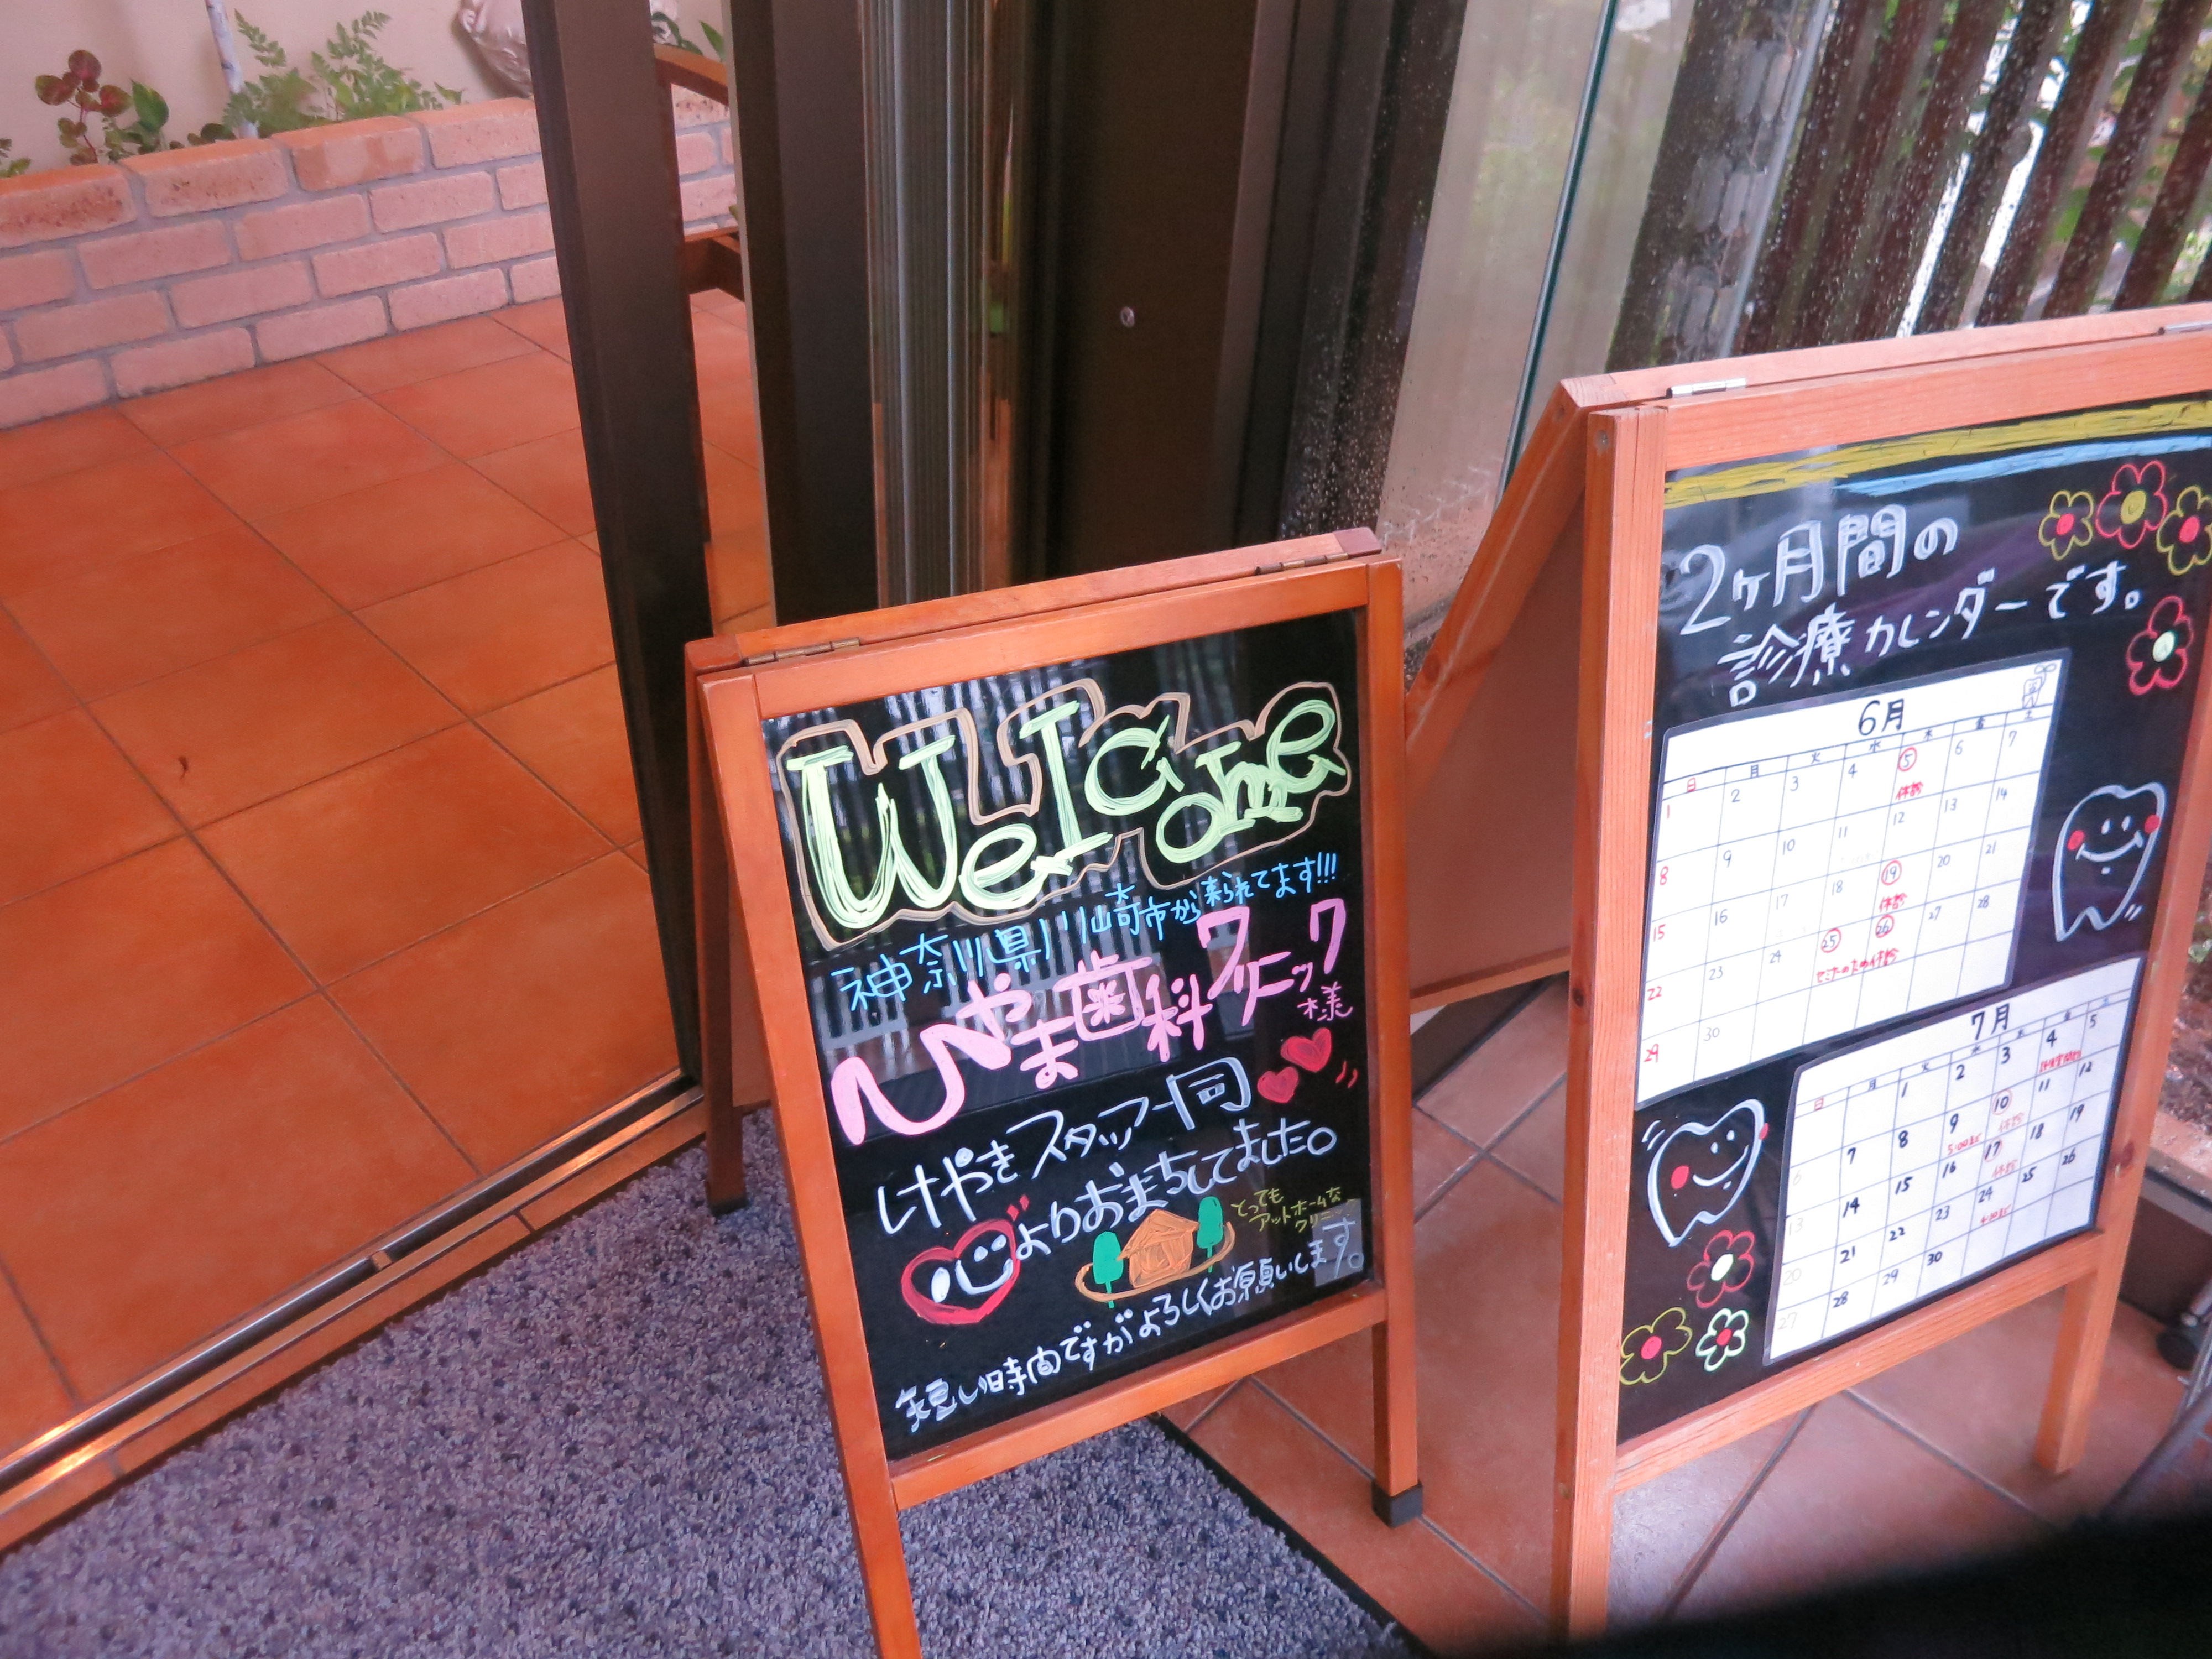 Welcome
神奈川県川崎市から来られてます!!!
ひやま歯科クリニック様
けやきスタッフ一同
心よりおまちしてました。
とっても
アットホームな
クリニ
短い時間ですがよろしくお願いします。
2ヶ月間の
診療カレンダーです。
6月
日 月 火 水 木 金 土
1 2 3 4 5 6 7
休診
8 9 10 11 12 13 14
15 16 17 18 19 20 21
休診
22 23 24 25 26 27 28
セミナーのため休診
29 30
7月
日 月 火 水 木 金 土
1 2 3 4 5
6 7 8 9 10 11 12
休診
13 14 15 16 17 18 19
休診
20 21 22 23 24 25 26
27 28 29 30